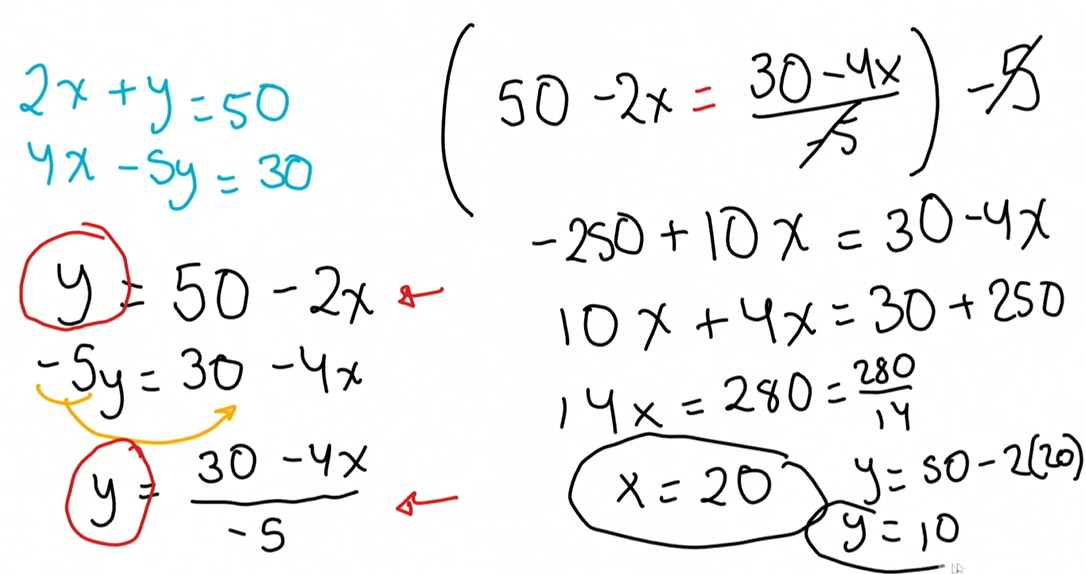 2x + y = 50
4x - 5y = 30
y = 50 - 2x
-5y = 30 - 4x
y = (30 - 4x)/-5
(50 - 2x = (30 - 4x)/-5) -5
-250 + 10x = 30 - 4x
10x + 4x = 30 + 250
14x = 280 = 280/14
x = 20
y = 50 - 2(20)
y = 10